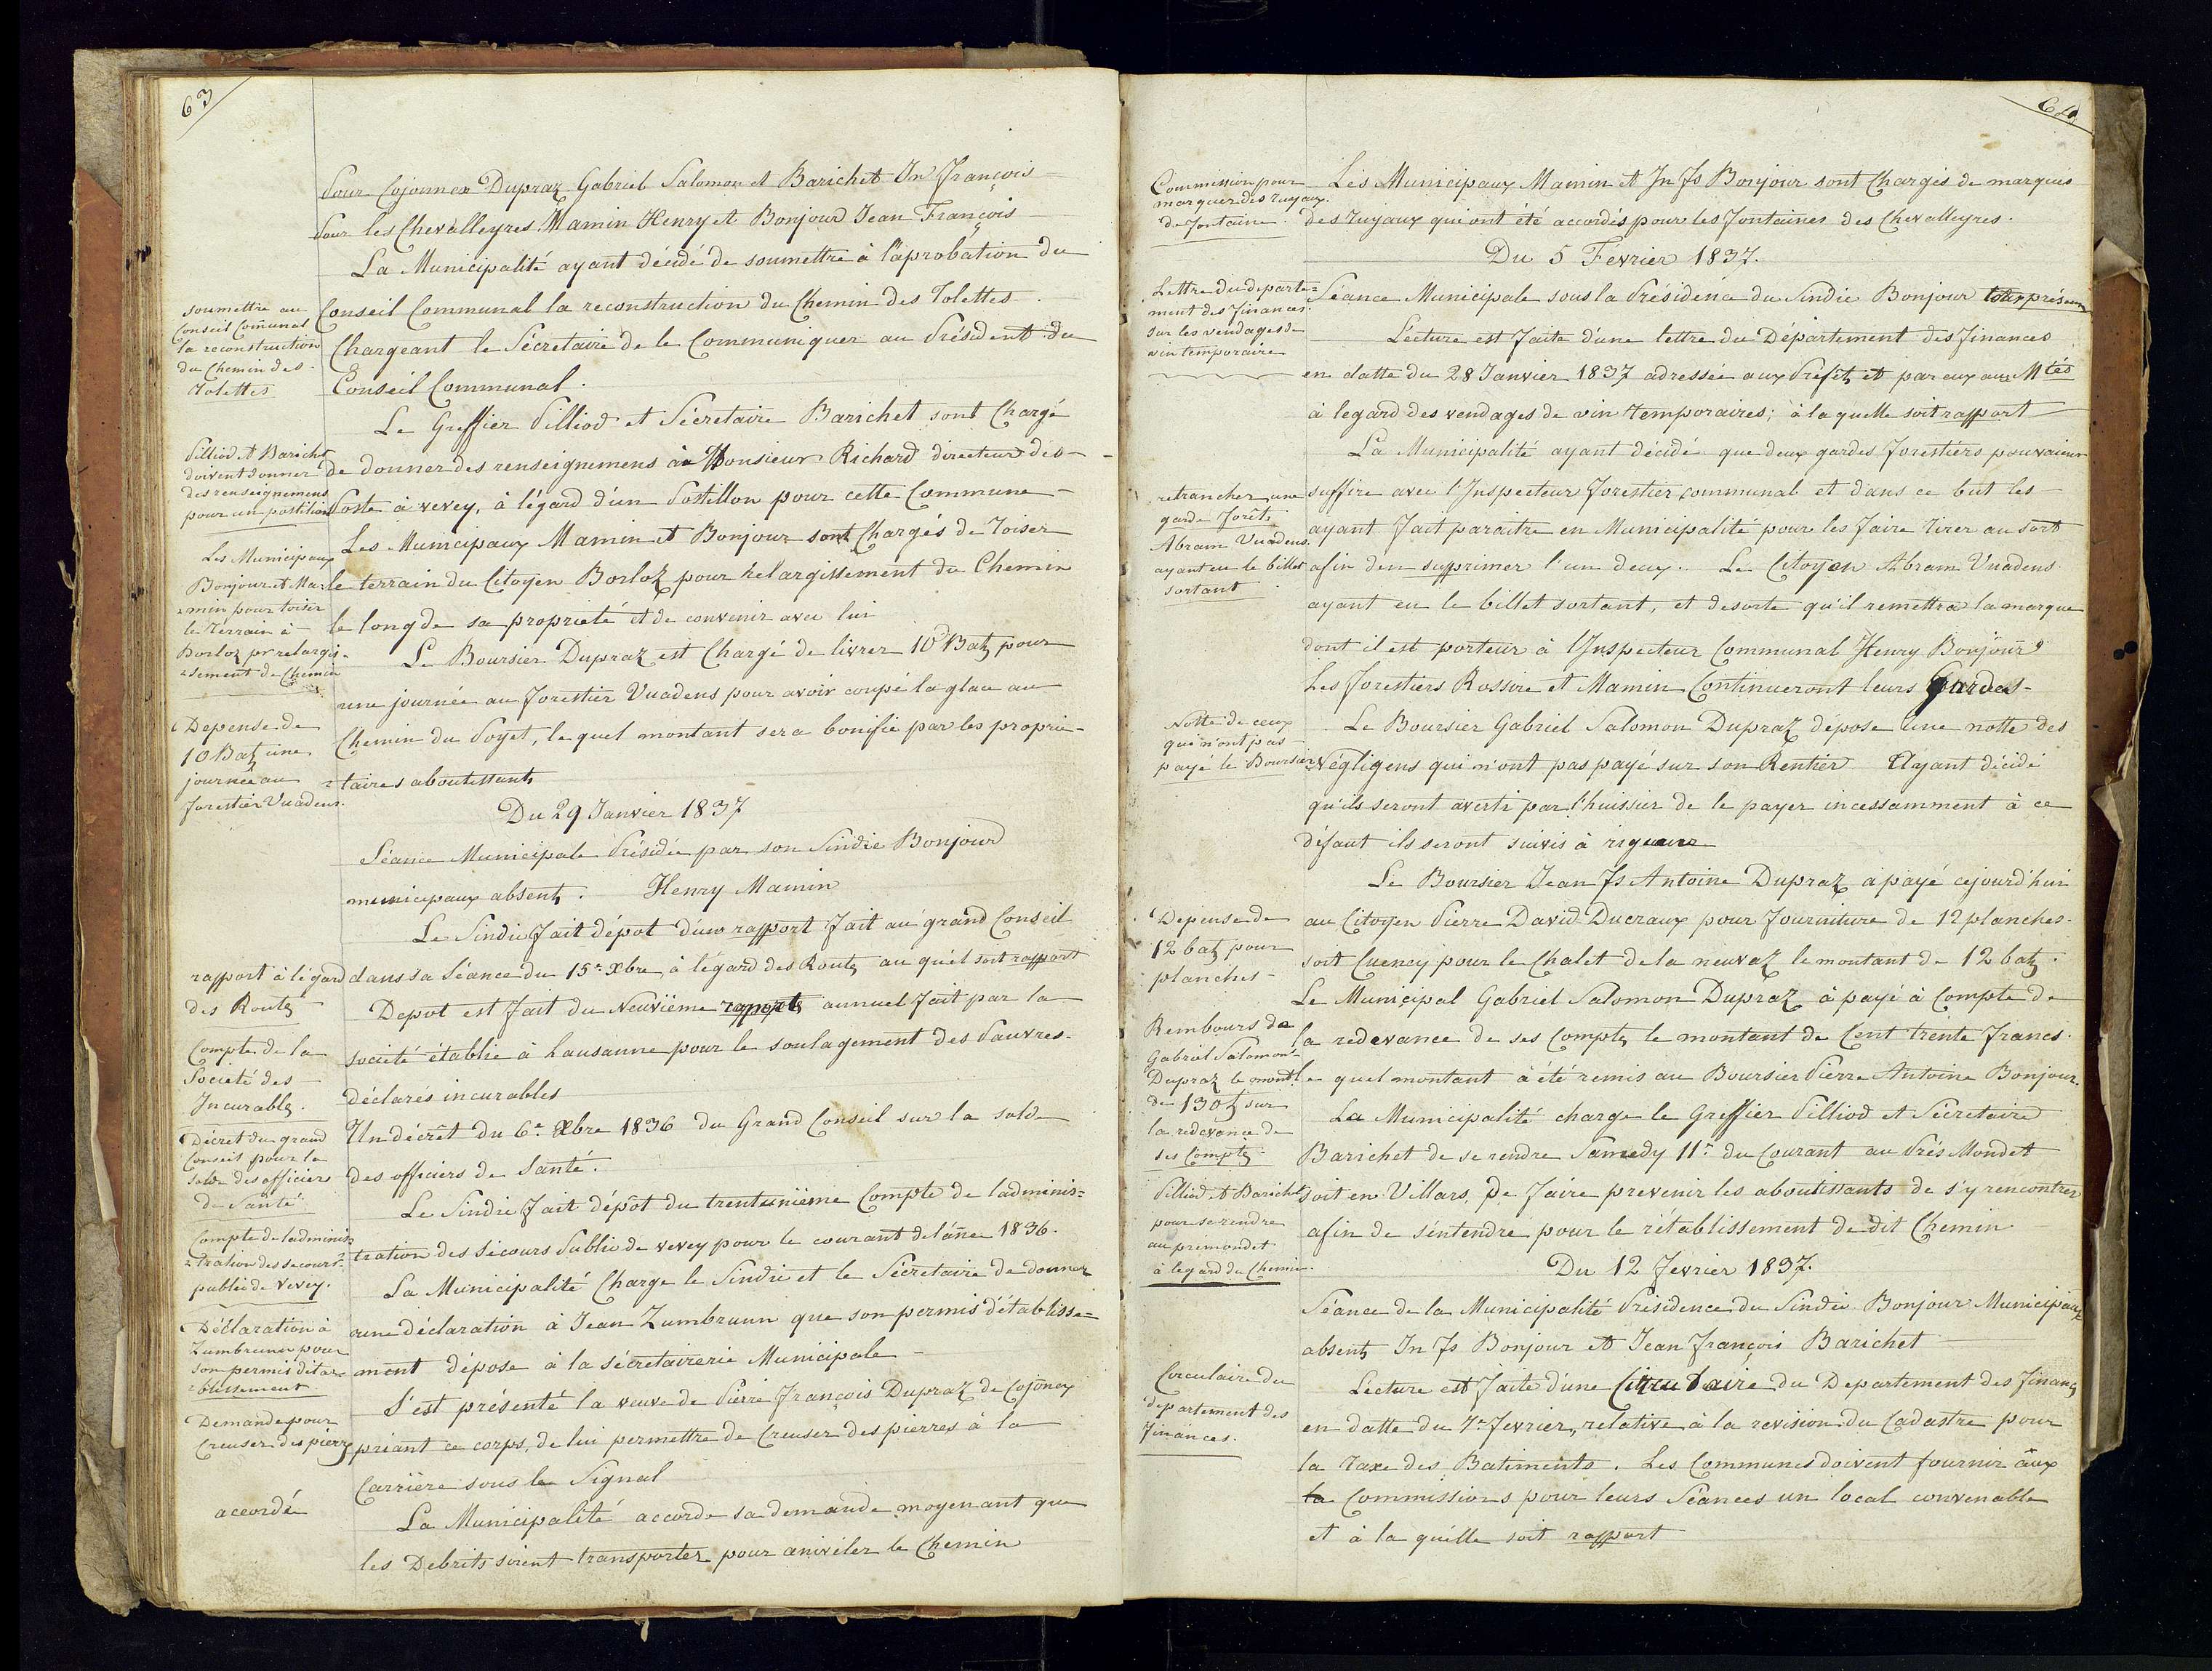 63
Pour Cojonnex Dupraz Gabriel Salomon et Barichet Jn François
Pour les Chevalleyres Mamin Henry et Bonjour Jean François
La Municipalité ayant décidé de soumettre à l'aprobation du
soumettre au
Conseil Communal
la reconstruction
du Chemin des
Tolettes
Conseil Communal la reconstruction du Chemin des Tolettes
Chargeant le Sécretaire de le Communiquer au Président du
Conseil Communal.
Le Greffier Pilliod et Sécretaire Barichet sont Chargé
Pilliod et Barichet
doivent donner
des renseignemens
pour un postillion
de donner des renseignemens à Monsieur Richard directeur des
Poste à vevey, à l'égard d'un Postillon pour cette Commune
Les Municipaux
Bonjour et Ma-
min pour toiser
le terrain à
Borloz pr relargis-
sement de Chemin
Les Municipaux Mamin et Bonjour sont Chargés de Toiser
le terrain du Citoyen Borloz pour relargissement du Chemin
le long de sa propriété et de convenir avec lui
Le Boursier Dupraz est Chargé de livrer 10 Batz pour
Depense de
10 Batz une
journée au
forestier Vuadens.
une journée au forestier Vuadens pour avoir coupé la glace au
Chemin du Poyet, le quel montant sera bonifié par les proprié-
taires aboutissants
Du 29 Janvier 1837
Séance Municipale Présidée par son Sindic Bonjour
municipaux absents. Henry Mamin
Le Sindic fait dépot d'un rapport fait au grand Conseil
rapport à légard
des Routs
dans sa Séance du 15e Xbre à légard des Routs au quel soit rapport
Depot est fait du Neuvième rapport annuel fait par la
Compte de la
Société des
Incurabls.
societé établie à Lausanne pour le soulagement des Pauvres
déclarés incurables
Décret du grand
Conseil pour la
solde des officiers
de Santé
Un décrêt du 6e Xbre 1836 du Grand Conseil sur la solde
des officiers de Santé.
Compte de ladminis-
tration des secours
public de Vevey.
Le Sindic fait dépôt du trentunième Compte de l'adminis-
tration des Sécours Public de vevey pour le courant de lânée 1836.
La Municipalité Charge le Sindic et le Sécretaire de donner
Déclaration à
Zumbrunn pour
son permis déta-
blissement
une déclaration à Jean Zumbrunn que son permis d'établisse-
ment dépose à la sécretairerie Municipale
Demande pour
Creuser des pierrs
S'est présenté la veuve de Pierre François Dupraz de Cojonex
priant ce corps, de lui permettre de Creuser des pierres à la
Carrière sous le Signal
accordée
La Municipalité accorde sa demande moyenant que
les Debrits soient transportés pour aniveler le Chemin
64
Commission pour
marquer des tuyaux
de fontaine
Les Municipaux Mamin et Jn fs Bonjour sont Chargés de marquis
des Tuyaux qui ont été accordés pour les fontaines des Chevalleyres.
Du 5 Février 1837.
Lettre du departe-
ment des finances
sur les vendages de
vin temporaire
Séance Municipale sous la Présidence du Sindic Bonjour tous présens
Lécture est faite d'une lettre du Département des finances
en datte du 28 Janvier 1837 adressée aux Préfets et par eux aux Mtés
à legard des vendages de vin temporaires; à la quelle soit rapport
La Municipalité ayant décidé que deux gardes forestiers pouvaient
retrancher une
garde forêts
Abram Vuadens
ayant eu le billet
sortant
suffire avec l'Inspecteur forestier communal et dans ce but les
ayant fait paraitre en Municipalité pour les faire tirer au sort
afin d'en supprimer l'un deux. Le Citoyen Abram Vuadens
ayant eu le billet sortant, et desorte qu'il remettra la marque
dont il est porteur à l'Inspecteur Communal Henry Bonjour
Les forestiers Rossire et Mamin Continueront leurs Gardes
Notte de ceux
qui n'ont pas
payé le Boursier
Le Boursier Gabriel Salomon Dupraz dépose une notte des
Négligens qui n'ont pas payé sur son Rentier Ayant décidé
qu'ils seront averti par l'huissier de le payer incessamment à ce
défaut ils seront suivis à rigueur
Le Boursier Jean fs Antoine Dupraz à payé cejourd'hui
Depense de
12 batz pour
planches
au Citoyen Pierre David Ducraux pour fourniture de 12 planches
soit Cuency pour le Chalet de la neuvaz le montant de 12 batz.
Rembours de
Gabriel Salomon
Dupraz le montt
de 130 f sur
la redevance de
ses Compts
Le Municipal Gabriel Salomon Dupraz à payé à Compte de
la redevance de ses Compts le montant de Cent trente francs
le quel montant à été remis au Boursier Pierre Antoine Bonjour.
La Municipalité charge le Greffier Pilliod et Sécretaire
Barichet de se rendre Samedy 11e du Courant au Prés Mondet
Pilliod et Barichet
pour se rendre
au prémondet
à legard du Chemin.
soit en Villars, De faire prevenir les aboutissants de s'y rencontrer
afin de s'éntendre pour le rétablissement de dit Chemin
Du 12 fevrier 1837.
Séance de la Municipalité Présidence du Sindic Bonjour Municipaux
absents Jn fs Bonjour et Jean françois Barichet
Circulaire du
departement des
finances.
Lecture est faite d'une Circulaire du Departement des finans
en datte du 7e fevrier, relative à la revision du Cadastre pour
la Taxe des Batiments. Les Communes doivent fournir aux
la Commissions pour leurs Séances un local convenable
et à la quélle soit rapport